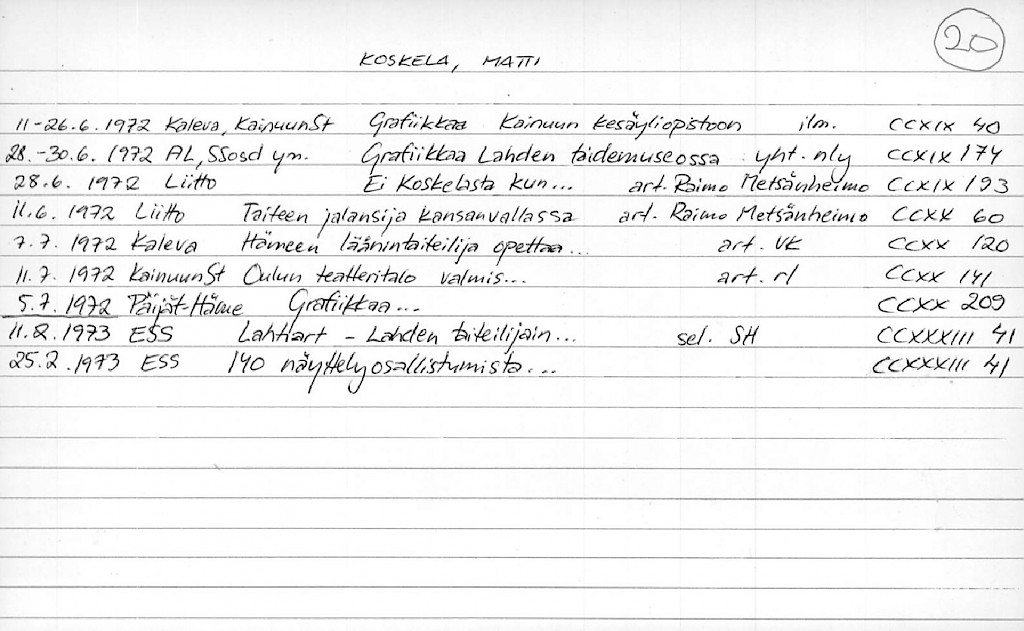 20
KOSKELA, MATTI
11-26.6.1972 Kaleva, KainuunSt Grafiikkaa Kainuun kesäyliopistoon ilm. CCXIX 40
28.-30.6.1972 AL, SSosd ym. Grafiikkaa Lahden taidemuseossa yht. nly CCXIX 174
28.6. 1972 Liitto Ei Koskelasta kun... art. Raimo Metsänheimo CCXIX 193
11.6. 1972 Liitto Taiteen jalansija kansanvallassa art. Raimo Metsänheimo CCXX 60
7.7. 1972 Kaleva Hämeen läänintaiteilija opettaa... art. VK CCXX 120
11.7. 1972 KainuunSt Oulun teatteritalo valmis... art. rl CCXX 141
5.7. 1972 Päijät-Häme Grafiikkaa... CCXX 209
11.2.1973 ESS Lahtiart - Lahden taiteilijain... sel. SH CCXXXIII 41
25.2.1973 ESS 140 näyttelyosallistumista... CCXXXIII 41